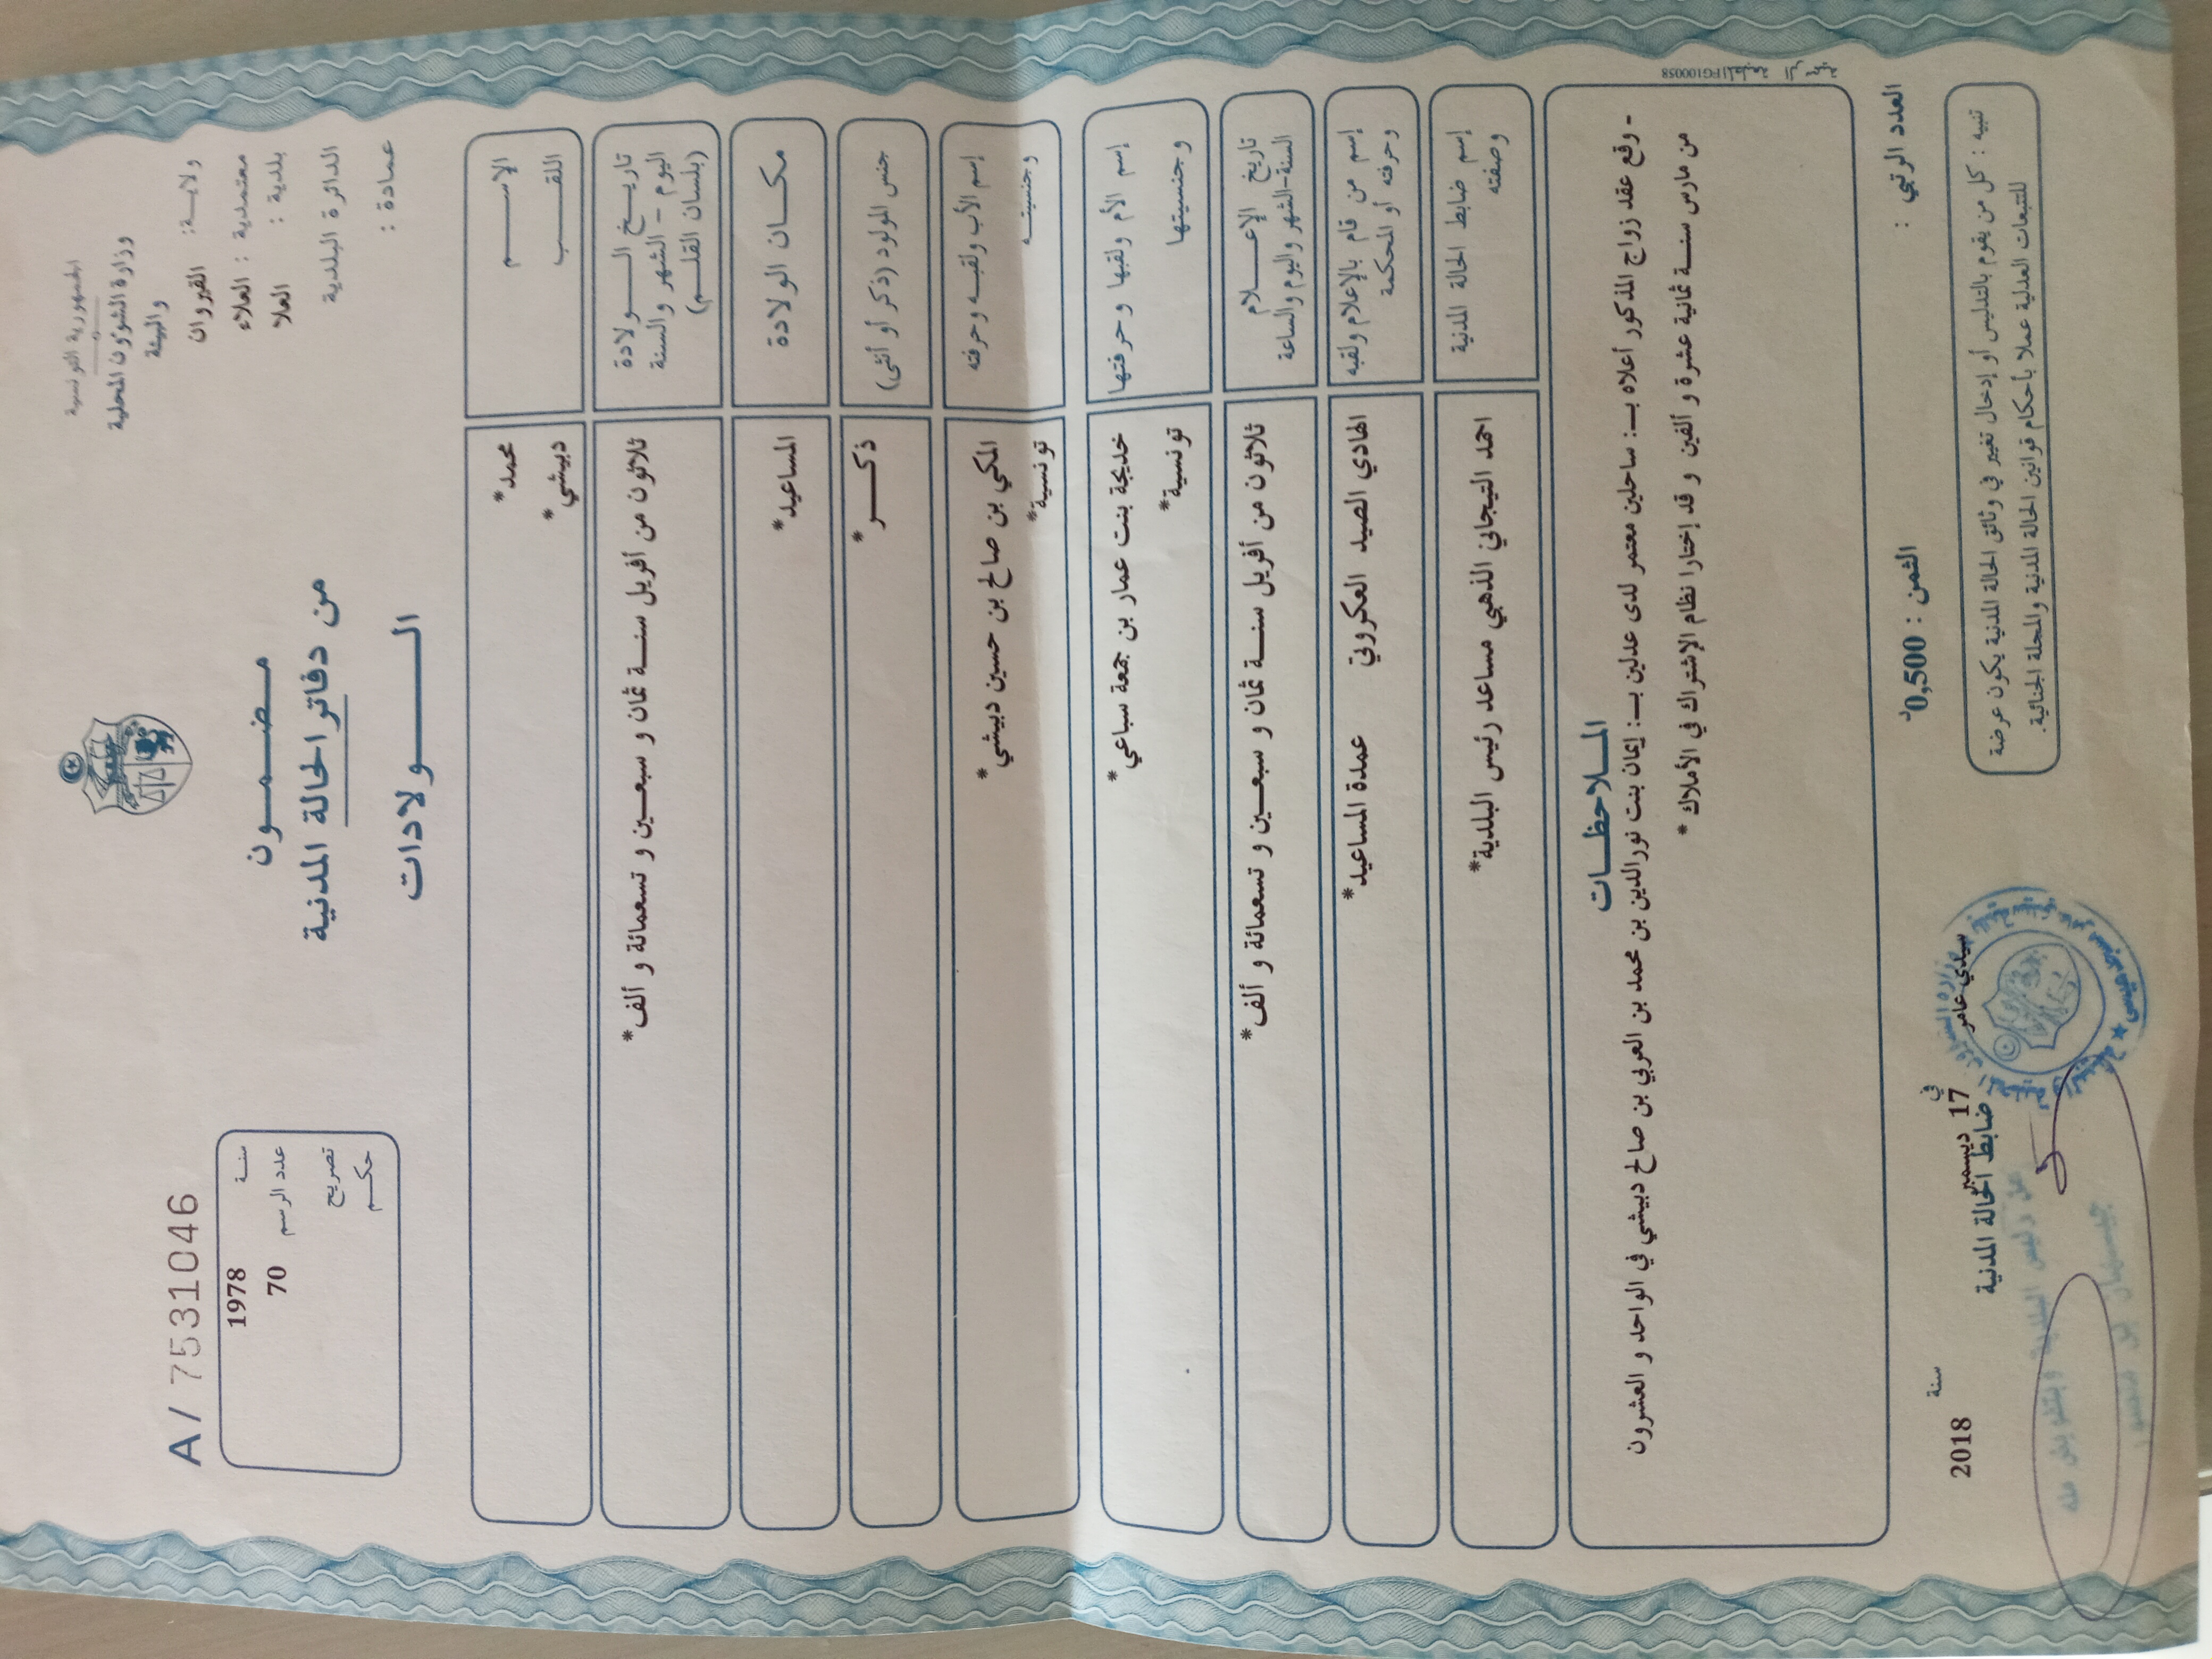 الجمهورية التونسية
وزارة الشؤون المحلية
والبيئة
ولاية: القيروان
معتمدية : العلاء
بلدية : العلا
الدائرة البلدية
عمادة :
مضمون
من دفاتر الحالة المدنية
الولادات
A/ 7531046
سنة 1978
عدد الرسم 70
تصريح
حكم
الإسم محمد*
اللقب دبيشي*
تاريخ الولادة
اليوم - الشهر والسنة
(بلسان القلم)
ثلاثون من أفريل سنة ثمان و سبعين و تسعمائة و ألف*
مكان الولادة المساعيد*
جنس المولود (ذكر أو أنثى) ذكر*
إسم الأب ولقبه وحرفته المكي بن صالح بن حسين دبيشي*
وجنسيته تونسية*
إسم الأم ولقبها وحرفتها خديجة بنت عمار بن جمعة سباعي*
وجنسيتها تونسية*
تاريخ الإعلام
السنة-الشهر واليوم والساعة
ثلاثون من أفريل سنة ثمان و سبعين و تسعمائة و ألف*
إسم من قام بالإعلام ولقبه
وحرفته أو المحكمة
الهادي الصيد العكروتي عمدة المساعيد*
إسم ضابط الحالة المدنية
وصفته
احمد التيجاني الذهبي مساعد رئيس البلدية*
الملاحظات
- وقع عقد زواج المذكور أعلاه بـ: ساحلين معتمر لدى عدلين بـ: إيمان بنت نورالدين بن محمد بن العربي بن صالح دبيشي في الواحد و العشرون
من مارس سنة ثمانية عشرة و ألفين و قد إختارا نظام الإشتراك في الأملاك *
FG100058
العدد الرتبي :
الثمن : 0,500د
سيدي عامر في 17 ديسمبر سنة 2018
ضابط الحالة المدنية
تنبيه : كل من يقوم بالتدليس أو إدخال تغيير في وثائق الحالة المدنية يكون عرضة
للتتبعات العدلية عملا بأحكام قوانين الحالة المدنية والمجلة الجنائية.